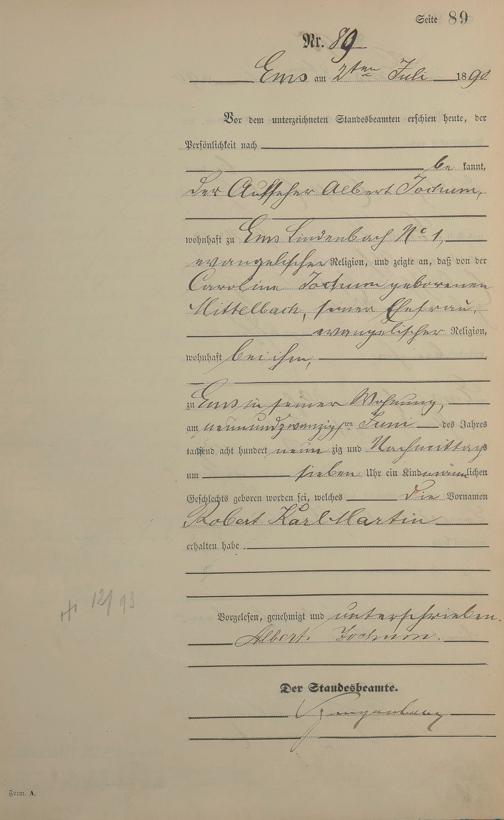 Seite 89
Nr. 89
Ems am 2ten Juli 1890
Vor dem unterzeichneten Standesbeamten erschien heute, der
Persönlichkeit nach
be kannt,
der Aufseher Albert Jochum,
wohnhaft zu Ems Lindenbach No 1,
evangelischer Religion, und zeigte an, daß von der
Caroline Jochum geborenen
Mittelbach, seiner Ehefrau,
evangelischer Religion,
wohnhaft bei ihm,
zu Ems in seiner Wohnung,
am neunundzwanzigsten Juni des Jahres
tausend acht hundert neun zig und Nachmittags
um sieben Uhr ein Kind männlichen
Geschlechts geboren worden sei, welches die Vornamen
Robert Karl Martin
erhalten habe
Vorgelesen, genehmigt und unterschrieben.
Albert Jochum.
Der Standesbeamte.
Form. A.